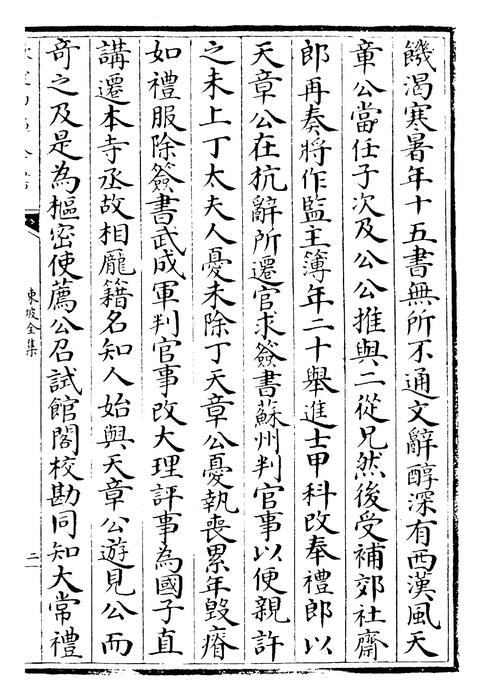 饑渴寒暑年十五書無所不通文辭醇深有西漢風天
章公當任子次及公公推與二從兄然後受補郊社齋
郎再奏將作監主簿年二十舉進士甲科改奉禮郎以
天章公在杭辭所遷官求簽書蘇州判官事以便親許
之未上丁太夫人憂未除丁天章公憂執喪累年毀瘠
如禮服除簽書武成軍判官事改大理評事為國子直
講遷本寺丞故相龎籍名知人始與天章公遊見公而
竒之及是為樞密使薦公召試館閣校勘同知太常禮
東坡全集
二